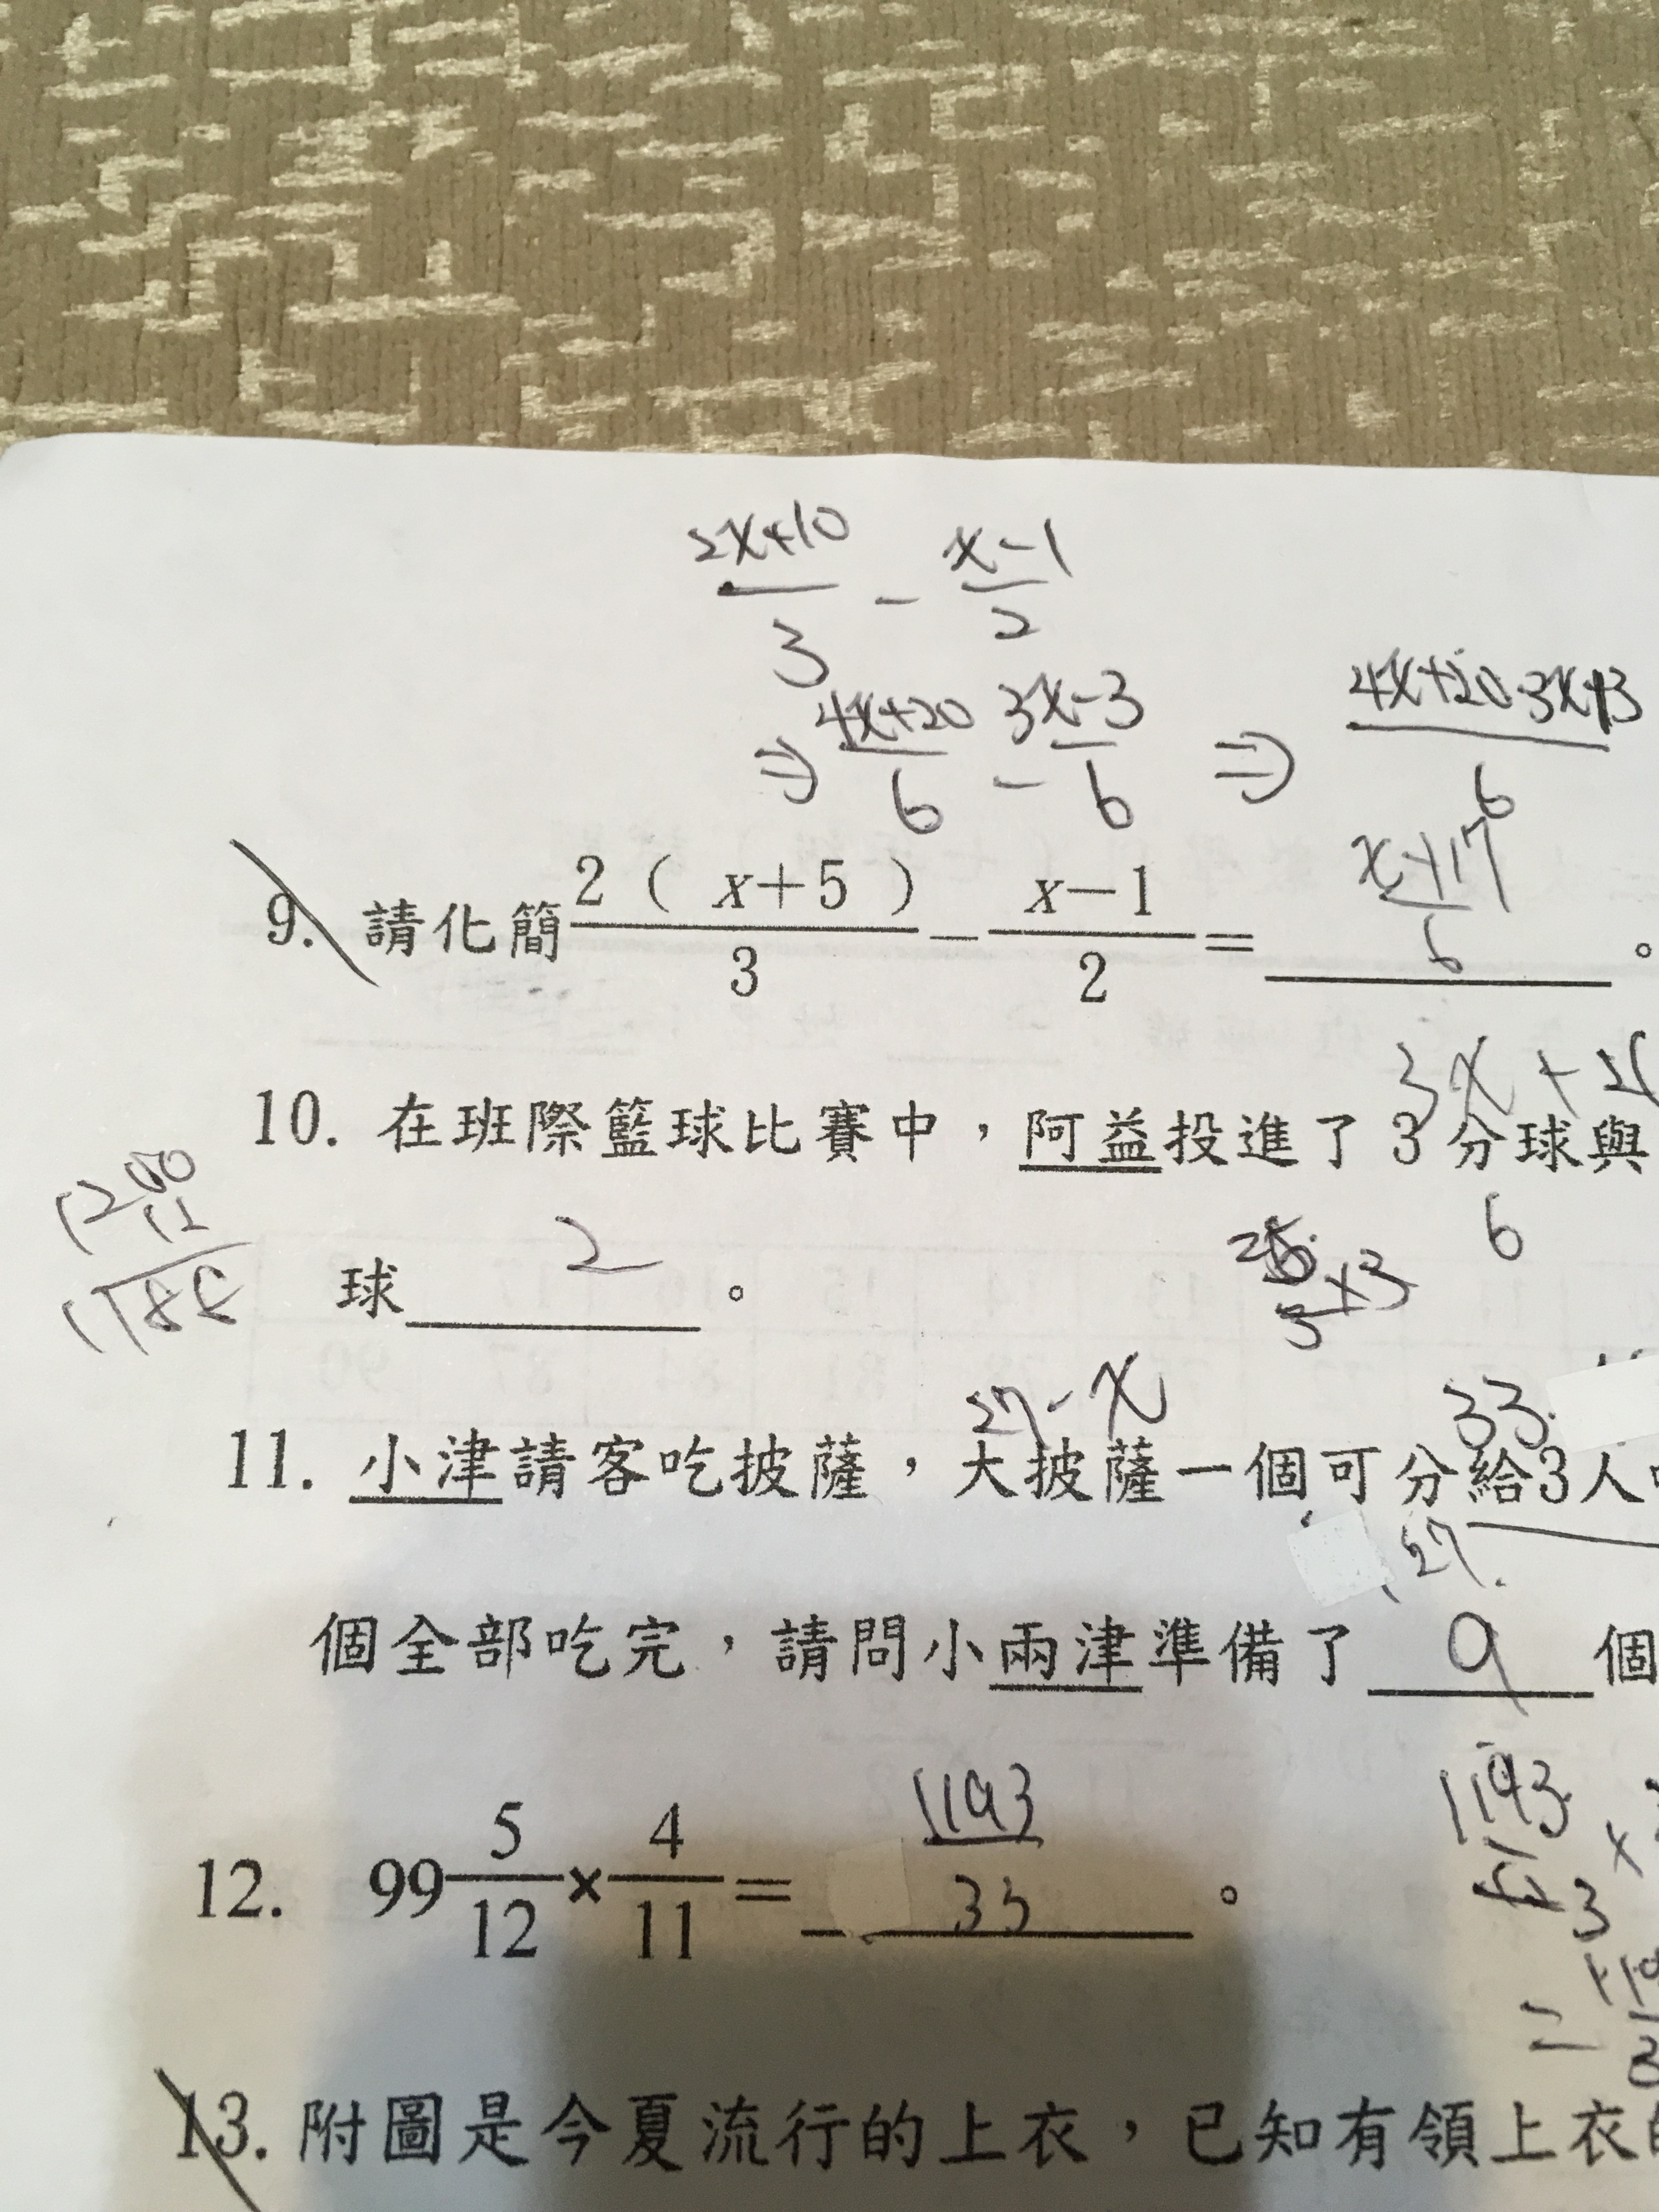 2x+10 / 3 - x-1 / 2
⇒ 4x+20 / 6 - 3x-3 / 6 ⇒ 4x+20-3x+3 / 6
9. 請化簡 2 ( x+5 ) / 3 - x-1 / 2 = x+17 / 6 。
3x+
10. 在班際籃球比賽中，阿益投進了 3 分球與
1200
12
6
球 2 。
×3
5
27-x
33
11. 小津請客吃披薩，大披薩一個可分給3人
27
個全部吃完，請問小兩津準備了 9 個
12. 99 5/12 × 4/11 = 1193 / 33 。
1193
3
=
13. 附圖是今夏流行的上衣，已知有領上衣的